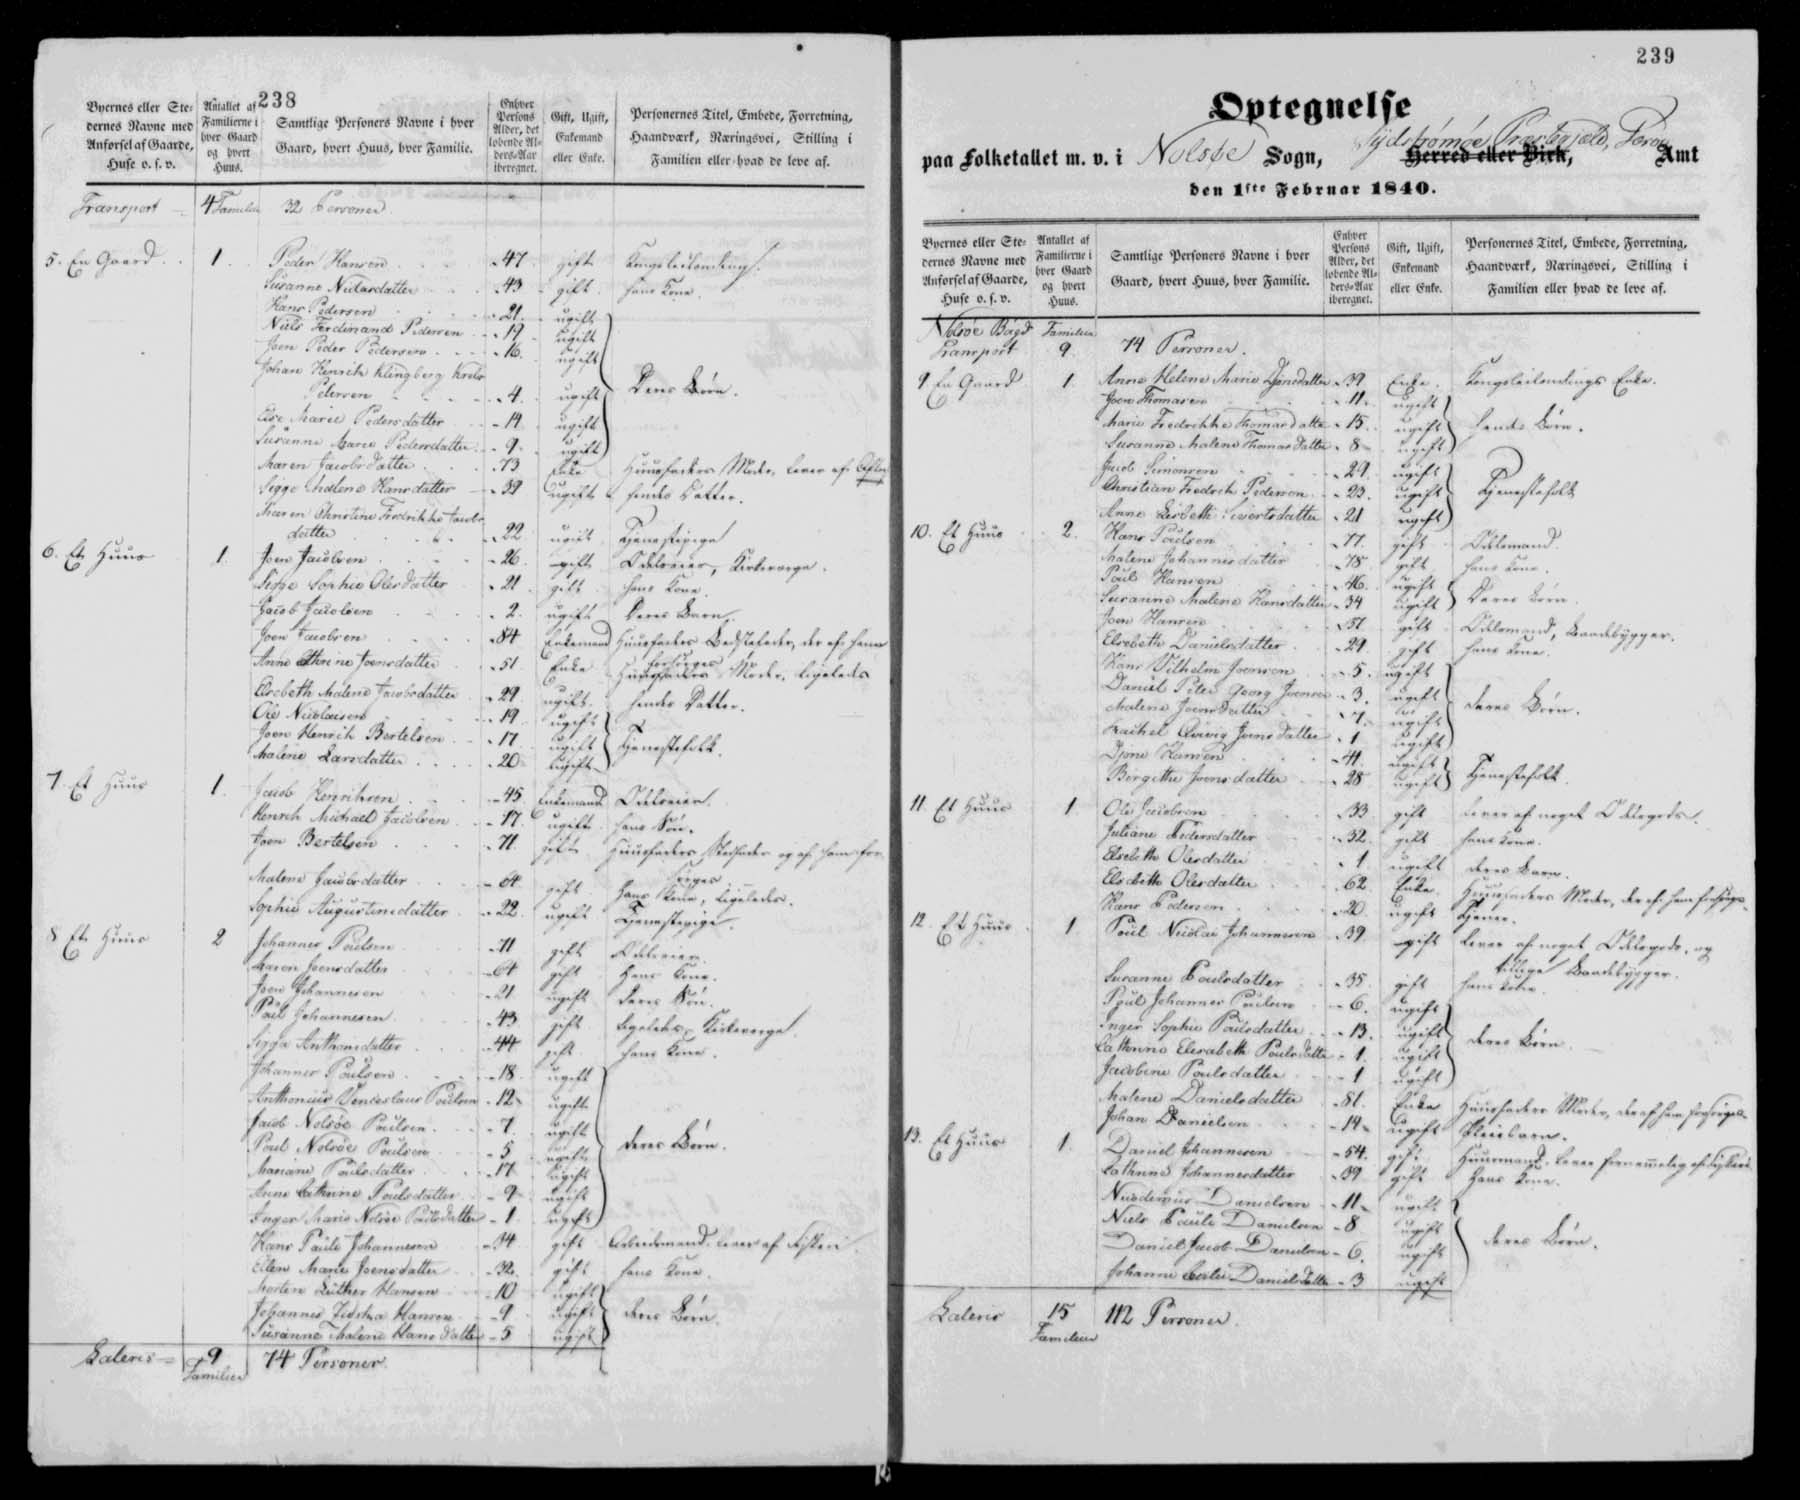 238
Byernes eller Ste-
dernes Navne med
Anførsel af Gaarde,
Huse o. s. v.
Antallet af
Familierne i
hver Gaard
og hvert
Huus.
Samtlige Personers Navne i hver
Gaard, hvert Huus, hver Familie.
Enhver
Persons
Alder, det
løbende Al-
ders-Aar
iberegnet.
Gift, Ugift,
Enkemand
eller Enke.
Personernes Titel, Embede, Forretning,
Haandværk, Næringsvei, Stilling i
Familien eller hvad de leve af.
Transport 4 Familier 32 Personer
5. En Gaard 1. Peder Hansen 47 gift
Susanne 43 gift hans Kone.
Hans Pedersen 21 ugift
Niels Ferdinand Pedersen 19 ugift
Joen Peder Pedersen 16 ugift
Johan Henrich Klingberg
Petersen 4 ugift Deres Børn.
Else Marie Pedersdatter 14 ugift
Susanne Marie Pedersdatter 9 ugift
Maren Jacobsdatter 73 Enke Huusfaders Moder, lever af
Sigge Malene Hansdatter 39 ugift hendes Datter.
Maren Christine Fredrikke Jacobs-
datter 22 ugift Tjenestepige
6. Et Huus 1. Joen Jacobsen 26 gift Odelseier, Kirkeverge.
Sigge Sophie Olesdatter 21 gift hans Kone.
Jacob Jacobsen 2 ugift Deres Barn.
Joen Jacobsen 84 Enkemand Huusfaders Bedstefader, der af ham
forsørges
Anne Joensdatter 51 Enke Huusfaders Moder, ligeledes
Elsebeth Malene Jacobsdatter 29 ugift hendes Datter.
Ole Nicolaisen 19 ugift
Joen Henrich Bertelsen 17 ugift Tjenestefolk
Malene Larsdatter 20 ugift
7. Et Huus 1. Jacob Henriksen 45 Enkemand Odelseier.
Henrich Michael Jacobsen 17 ugift hans Søn.
Joen Bertelsen 71 gift Huusfaders Stedfader og af ham for-
sørges
Malene Jacobsdatter 64 gift Hans Kone, ligeledes.
Sophie Augustinusdatter 22 ugift Tjenestepige.
8 Et Huus 2 Johannes Poulsen 71 gift Odelseier.
Maren Joensdatter 64 gift Hans Kone.
Joen Johannesen 21 ugift Deres Søn.
Poul Johannesen 43 gift ligeledes, Kirkeverge.
Sigga Anthonisdatter 44 gift hans Kone.
Johannes Poulsen 18 ugift
Anthonius Venceslaus Poulsen 12 ugift
Jacob Nolsøe Poulsen 7 ugift
Poul Nolsøe Poulsen 5 ugift deres Børn.
Mariane Poulsdatter 17 ugift
Anne Cathrine Poulsdatter 9 ugift
Inger Marie Nolsøe Poulsdatter 1 ugift
Hans Pauli Johannesen 34 gift Arbeidsmand, lever af Fiskeri
Ellen Marie Joensdatter 32 gift hans Kone.
Morten Luther Hansen 10 ugift
Johannes Hansen 9 ugift deres Børn.
Susanne Malene Hansdatter 5 ugift
Lateris 9 74 Personer.
Familier
239
Optegnelse
paa Folketallet m. v. i Nolsøe Sogn, Sydstrømøe Præstegjeld, Herred eller Birk, Færøe Amt
den 1ste Februar 1840.
Byernes eller Ste-
dernes Navne med
Anførsel af Gaarde,
Huse o. s. v.
Antallet af
Familierne i
hver Gaard
og hvert
Huus.
Samtlige Personers Navne i hver
Gaard, hvert Huus, hver Familie.
Enhver
Persons
Alder, det
løbende Al-
ders-Aar
iberegnet.
Gift, Ugift,
Enkemand
eller Enke.
Personernes Titel, Embede, Forretning,
Haandværk, Næringsvei, Stilling i
Familien eller hvad de leve af.
Nolsøe Bøigd Familier
Transport 9. 74 Personer.
9 En Gaard 1. Anne Helene Marie 39 Enke. Enke.
Joen Thomasen 11 ugift
Marie Fredrikke Thomasdatter 15 ugift hendes Børn.
Susanne Malene Thomasdatter 8 ugift
Jacob Simonsen 29 ugift
Christian Fredrik Pedersen 23 ugift Tjenestefolk
Anne Lisbeth Sivertsdatter 21 ugift
10. Et Huus 2. Hans Poulsen 77 gift Odelsmand.
Malene Johannesdatter 78 gift hans Kone.
Poul Hansen 46 ugift
Susanne Malene Hansdatter 34 ugift Deres Børn.
Joen Hansen 37 gift Odelsmand, Baadebygger.
Elsebeth Danielsdatter 29 gift hans Kone.
Hans Vilhelm Joensen 5 ugift
Daniel Peter Georg Joensen 3 ugift
Malene Joensdatter 7 ugift deres Børn.
Rachel Joensdatter 1 ugift
Hansen 44 ugift
Birgitte Joensdatter 28 ugift Tjenestefolk.
11. Et Huus 1. Ole Jacobsen 33 gift lever af noget Odelsgods.
Juliane Pedersdatter 32 gift hans Kone.
Elsebeth Olesdatter 1 ugift deres Barn.
Elsebeth Olesdatter 62 Enke Huusfaders Moder, der af ham forsørges.
Hans Pedersen 20 ugift Tjener.
12. Et Huus 1. Poul Nicolai Johannesen 39 gift lever af noget Odelsgods, og
tillige Baadebygger.
Susanne Poulsdatter 35 gift hans Kone.
Poul Johannes Poulsen 6 ugift
Inger Sophie Poulsdatter 13 ugift
Cathrine Elisabeth Poulsdatter 1 ugift deres Børn
Jacobine Poulsdatter 1 ugift
Malene Danielsdatter 81 Enke Huusfaders Moder, der af ham forsørges
Johan Danielsen 14 ugift Pleiebarn.
13. Et Huus 1. Daniel Johannesen 54 gift Huusmand, lever fornemmelig af Fiskeri
Cathrine Johannesdatter 39 gift Hans Kone.
Nicodemus Danielsen 11 ugift
Niels Pauli Danielsen 8 ugift
Daniel Jacob Danielsen 6 ugift deres Børn.
Johanne Danielsdatter 3 ugift
Lateris 15 112 Personer.
Familier